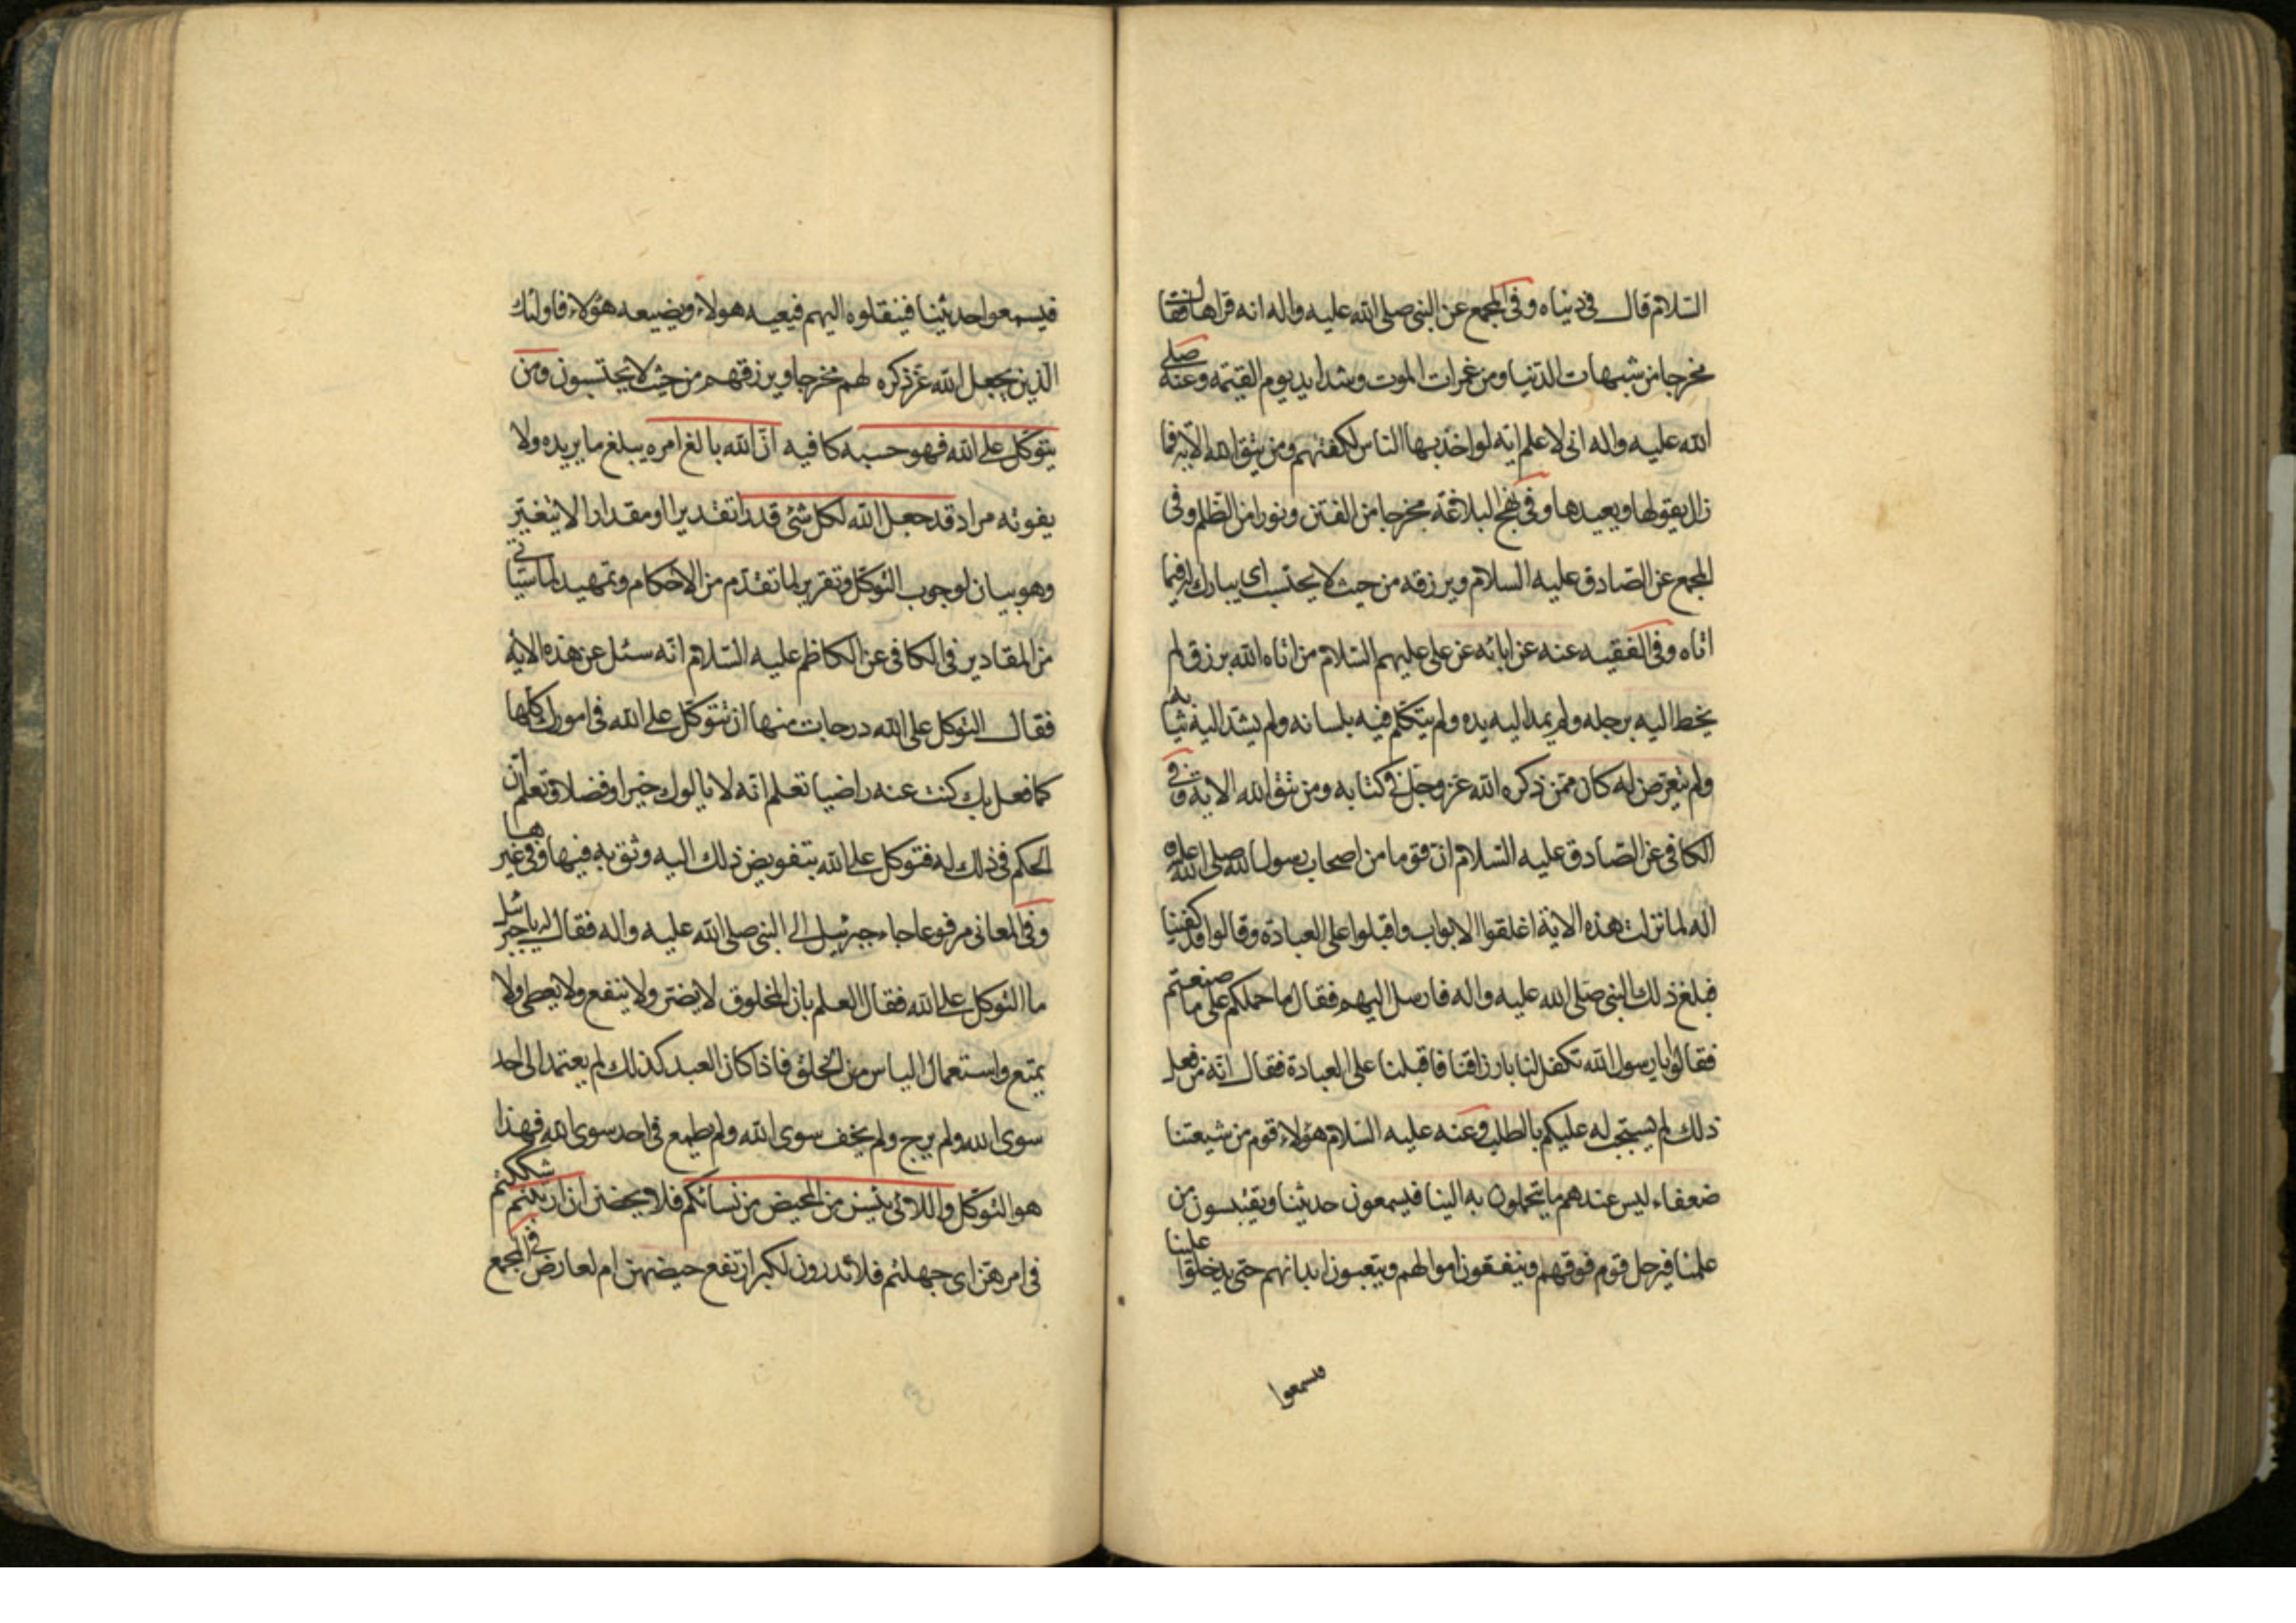 السّلام قال في دنياه وفي المجمع عن النبى صلى الله عليه واله انه قراها فقال
مخرجا من شبهات الدّنيا ومن غمرات الموت وشدايد يوم القيمه وعنه صلى
الله عليه واله انى لاعلم ايه لو اخذ بها الناس لكفتهم ومن يتق الله الآيه فما
زال يقولها ويعيدها وفي نهج البلاغة مخرجا من الفتن ونورا من الظلم وفى
المجمع عن الصّادق عليه السلام ويرزقه من حيث لا يحتسب اى يبارك له فيما
اتاه وفى الفقيه عنه عن ابائه عن على عليهم السّلام من اتاه الله برزق لم
يخط اليه برجله ولم يمد اليه يده ولم يتكلم فيه بلسانه ولم يشدّ اليه ثيابه
ولم يتعرّض له كان ممّن ذكره الله عز وجل في كتابه ومن يتق الله الاية وفي
الكافى عن الصّادق عليه السّلام انّ قوما من اصحاب رسول الله صلى الله عليه
اله لما نزلت هذه الاية اغلقوا الابواب واقبلوا على العبادة وقالوا قد كفينا
فبلغ ذلك النبى صلى الله عليه واله فارسل اليهم فقال ما حملكم على ما صنعتم
فقالوا يا رسول الله تكفل لنا بارزاقنا فاقبلنا على العبادة فقال انّه من فعل
ذلك لم يستجب له عليكم بالطلب وعنه عليه السّلام هؤلاء قوم من شيعتنا
ضعفاء ليس عندهم ما يتحملون به الينا فيسمعون حديثنا ويقتبسون من
علمنا فيرحل قوم فوقهم وينفقون اموالهم ويتعبون ابدانهم حتى يدخلوا علينا
فيسمعوا
فيسمعوا حديثنا فينقلوه اليهم فيعيه هولاء ويضيعه هؤلاء فاولئك
الّذين يجعل الله عزّ ذكره لهم مخرجا ويرزقهم من حيث لا يحتسبون ومن
يتوكّل على الله فهو حسبه كافيه انّ الله بالغ امره يبلغ ما يريده ولا
يفوته مراد قد جعل الله لكل شئ قدرا تقديرا او مقدارا لا يتغيّر
وهو بيان لوجوب التوكّل وتقرير لما تقدّم من الاحكام وتمهيد لما سياتى
من المقادير فى الكافى عن الكاظم عليه السّلام انّه سئل عن هذه الايه
فقال التوكل على الله درجات منها ان تتوكّل على الله فى امورك كلها
فما فعل بك كنت عنه راضيا تعلم انّه لا يالوك خيرا وفضلا وتعلم انّ
الحكم فى ذلك له فتوكل على الله بتفويض ذلك اليه وثق به فيها وفى غيرها
وفى المعانى مرفوعا جاء جبرئيل الى النبى صلى الله عليه واله فقال له يا جبرئيل
ما التوكل على الله فقال العلم بان المخلوق لا يضرّ ولا ينفع ولا يعطى ولا
يمنع واستعمال الياس من الخلق فاذا كان العبد كذلك لم يعتمد الى احد
سوى الله ولم يرج ولم يخف سوى الله ولم يطمع فى احد سوى الله فهذا
هو التّوكّل واللائى يئسن من المحيض من نسائكم فلا يحضن ان ارتبتم شككتم
فى امرهنّ اى جهلتم فلا تدرون لكبر ارتفع حيضهنّ ام لعارض فى المجمع